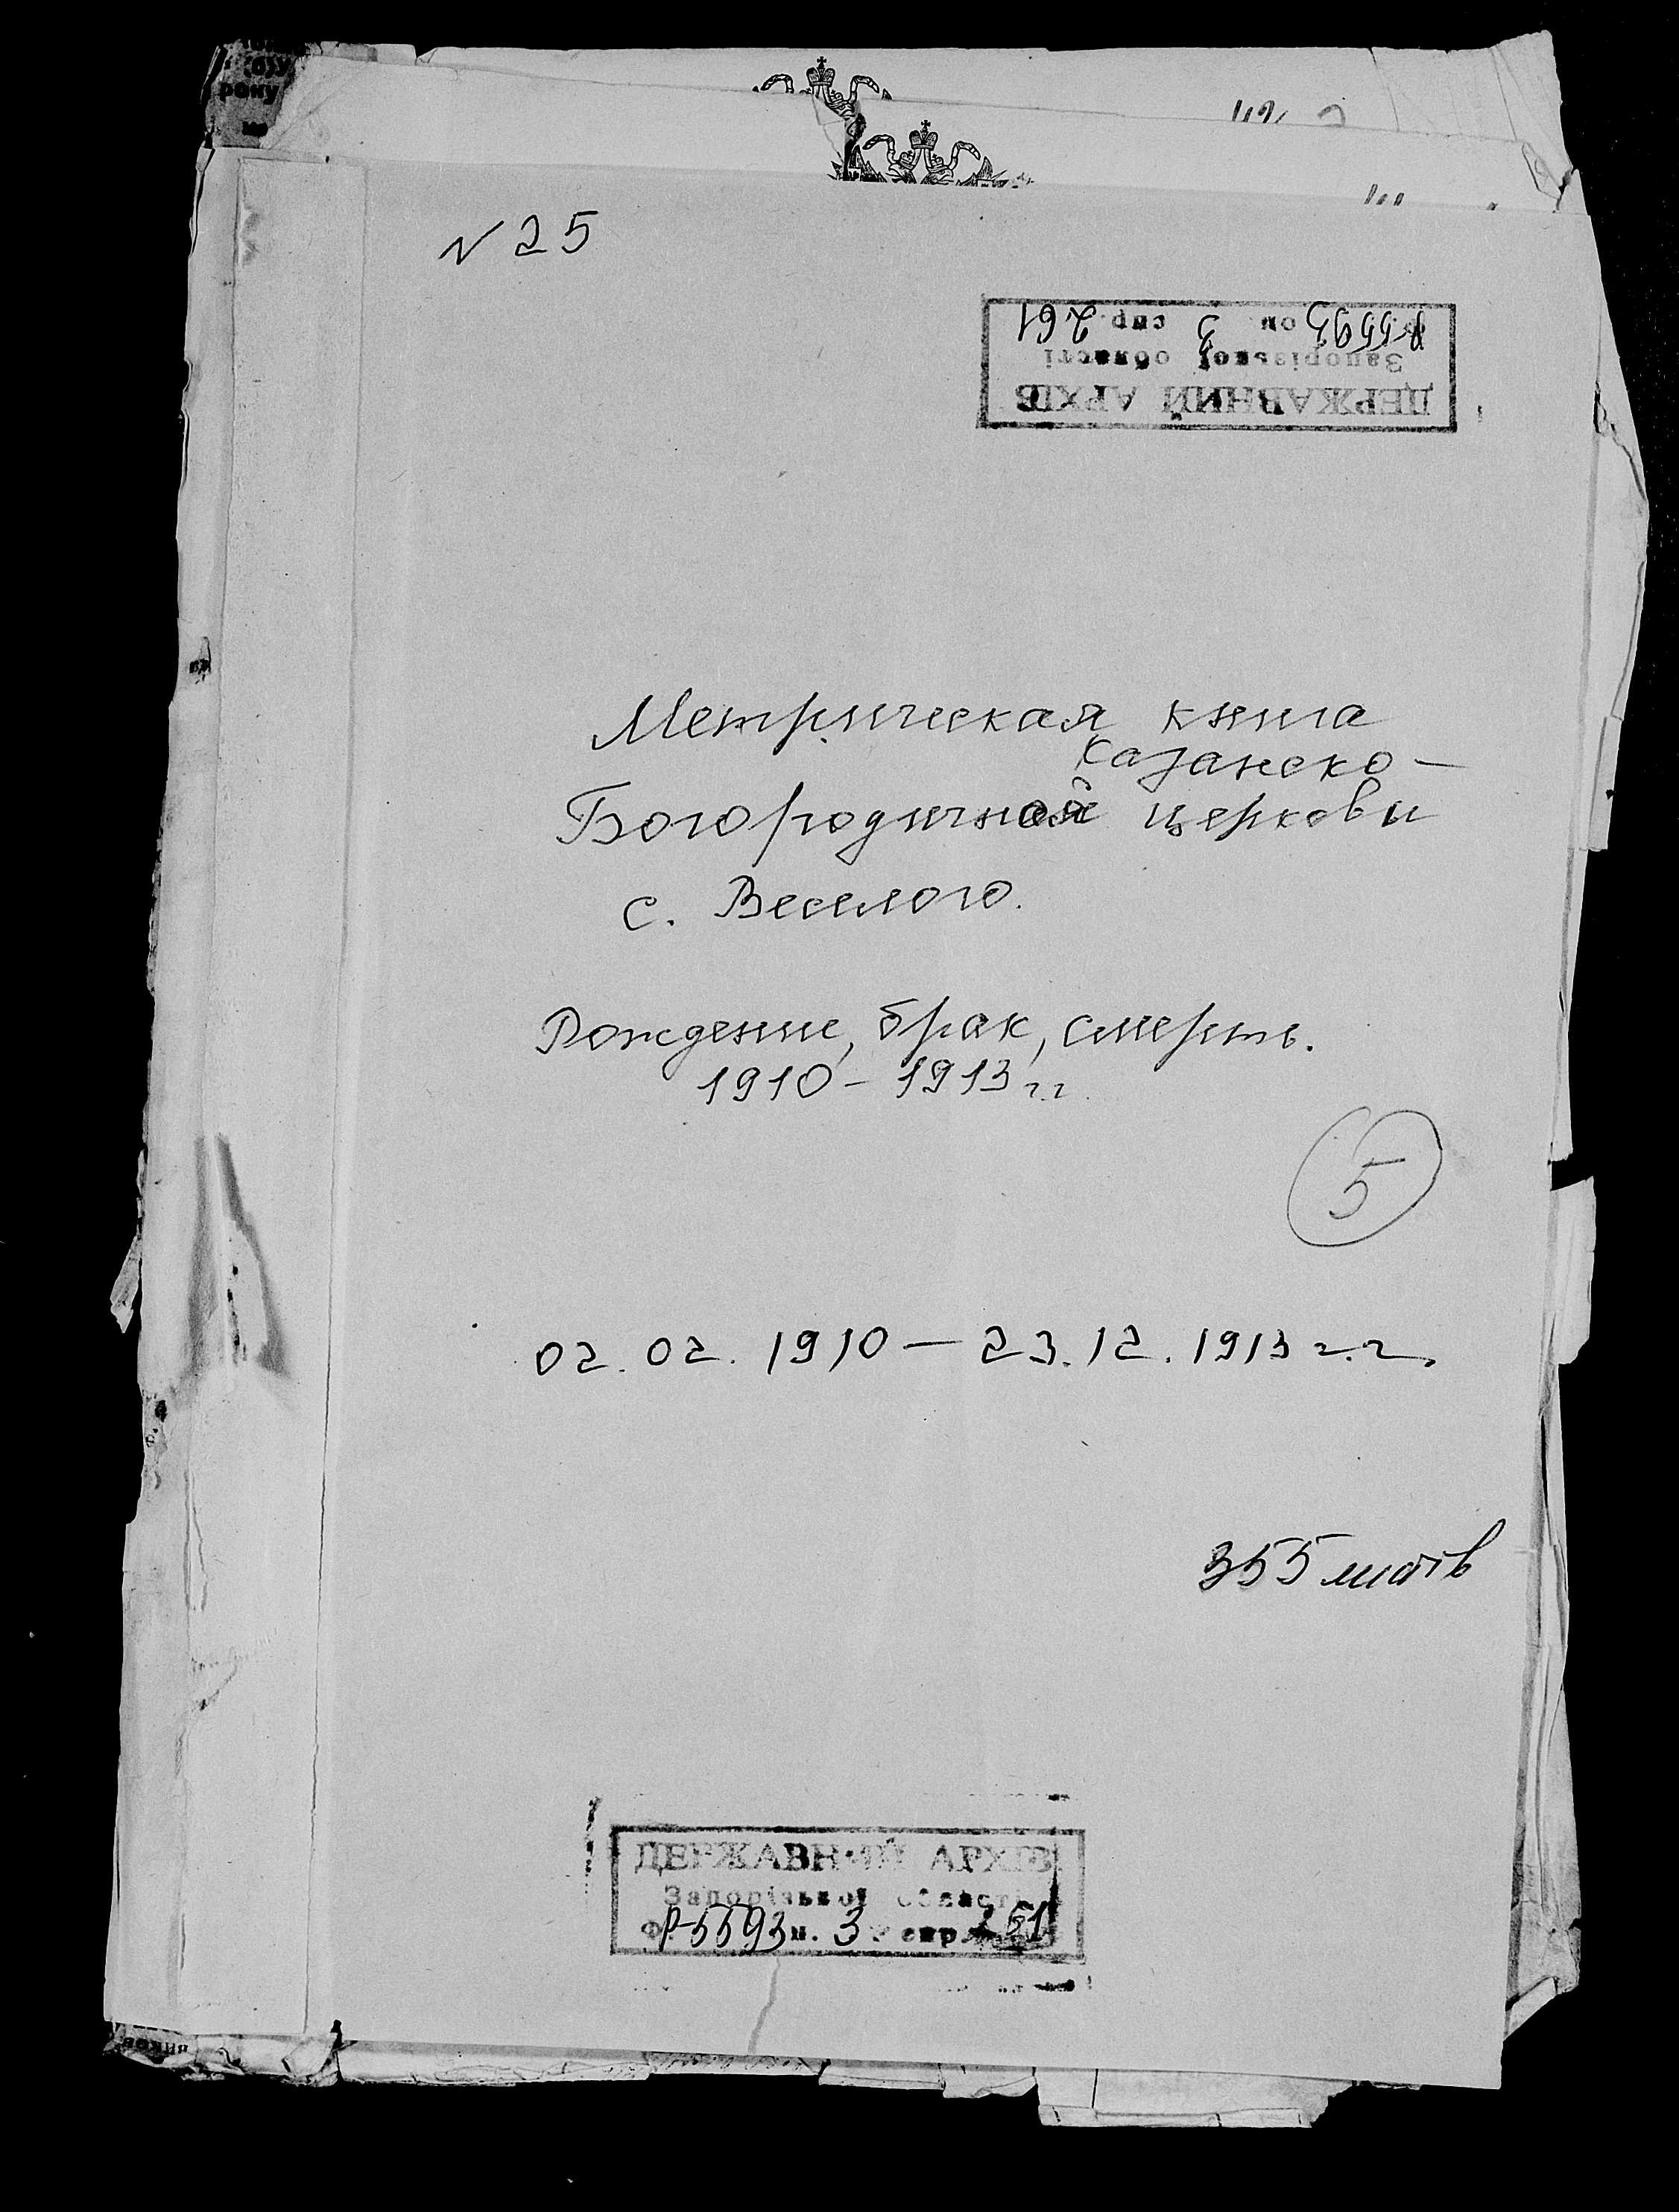 року
N 25
ДЕРЖАВНИЙ АРХІВ
Запорізької області
Р-5593 оп. 3 спр. 261
Метрическая книга
Казанско-
Богородичной церкви
с. Веселого.
Рождение, брак, смерть.
1910 - 1913 г.г.
5
02.02.1910 — 23.12.1913 г.г.
355 листів
ДЕРЖАВНИЙ АРХІВ
Запорізької області
Ф. Р-5593 оп. 3 спр.